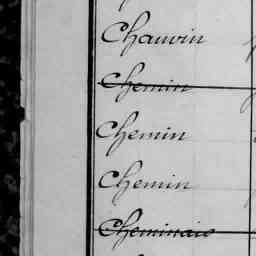 Chauvin
Chemin
Chemin
Chemin
Cheminais